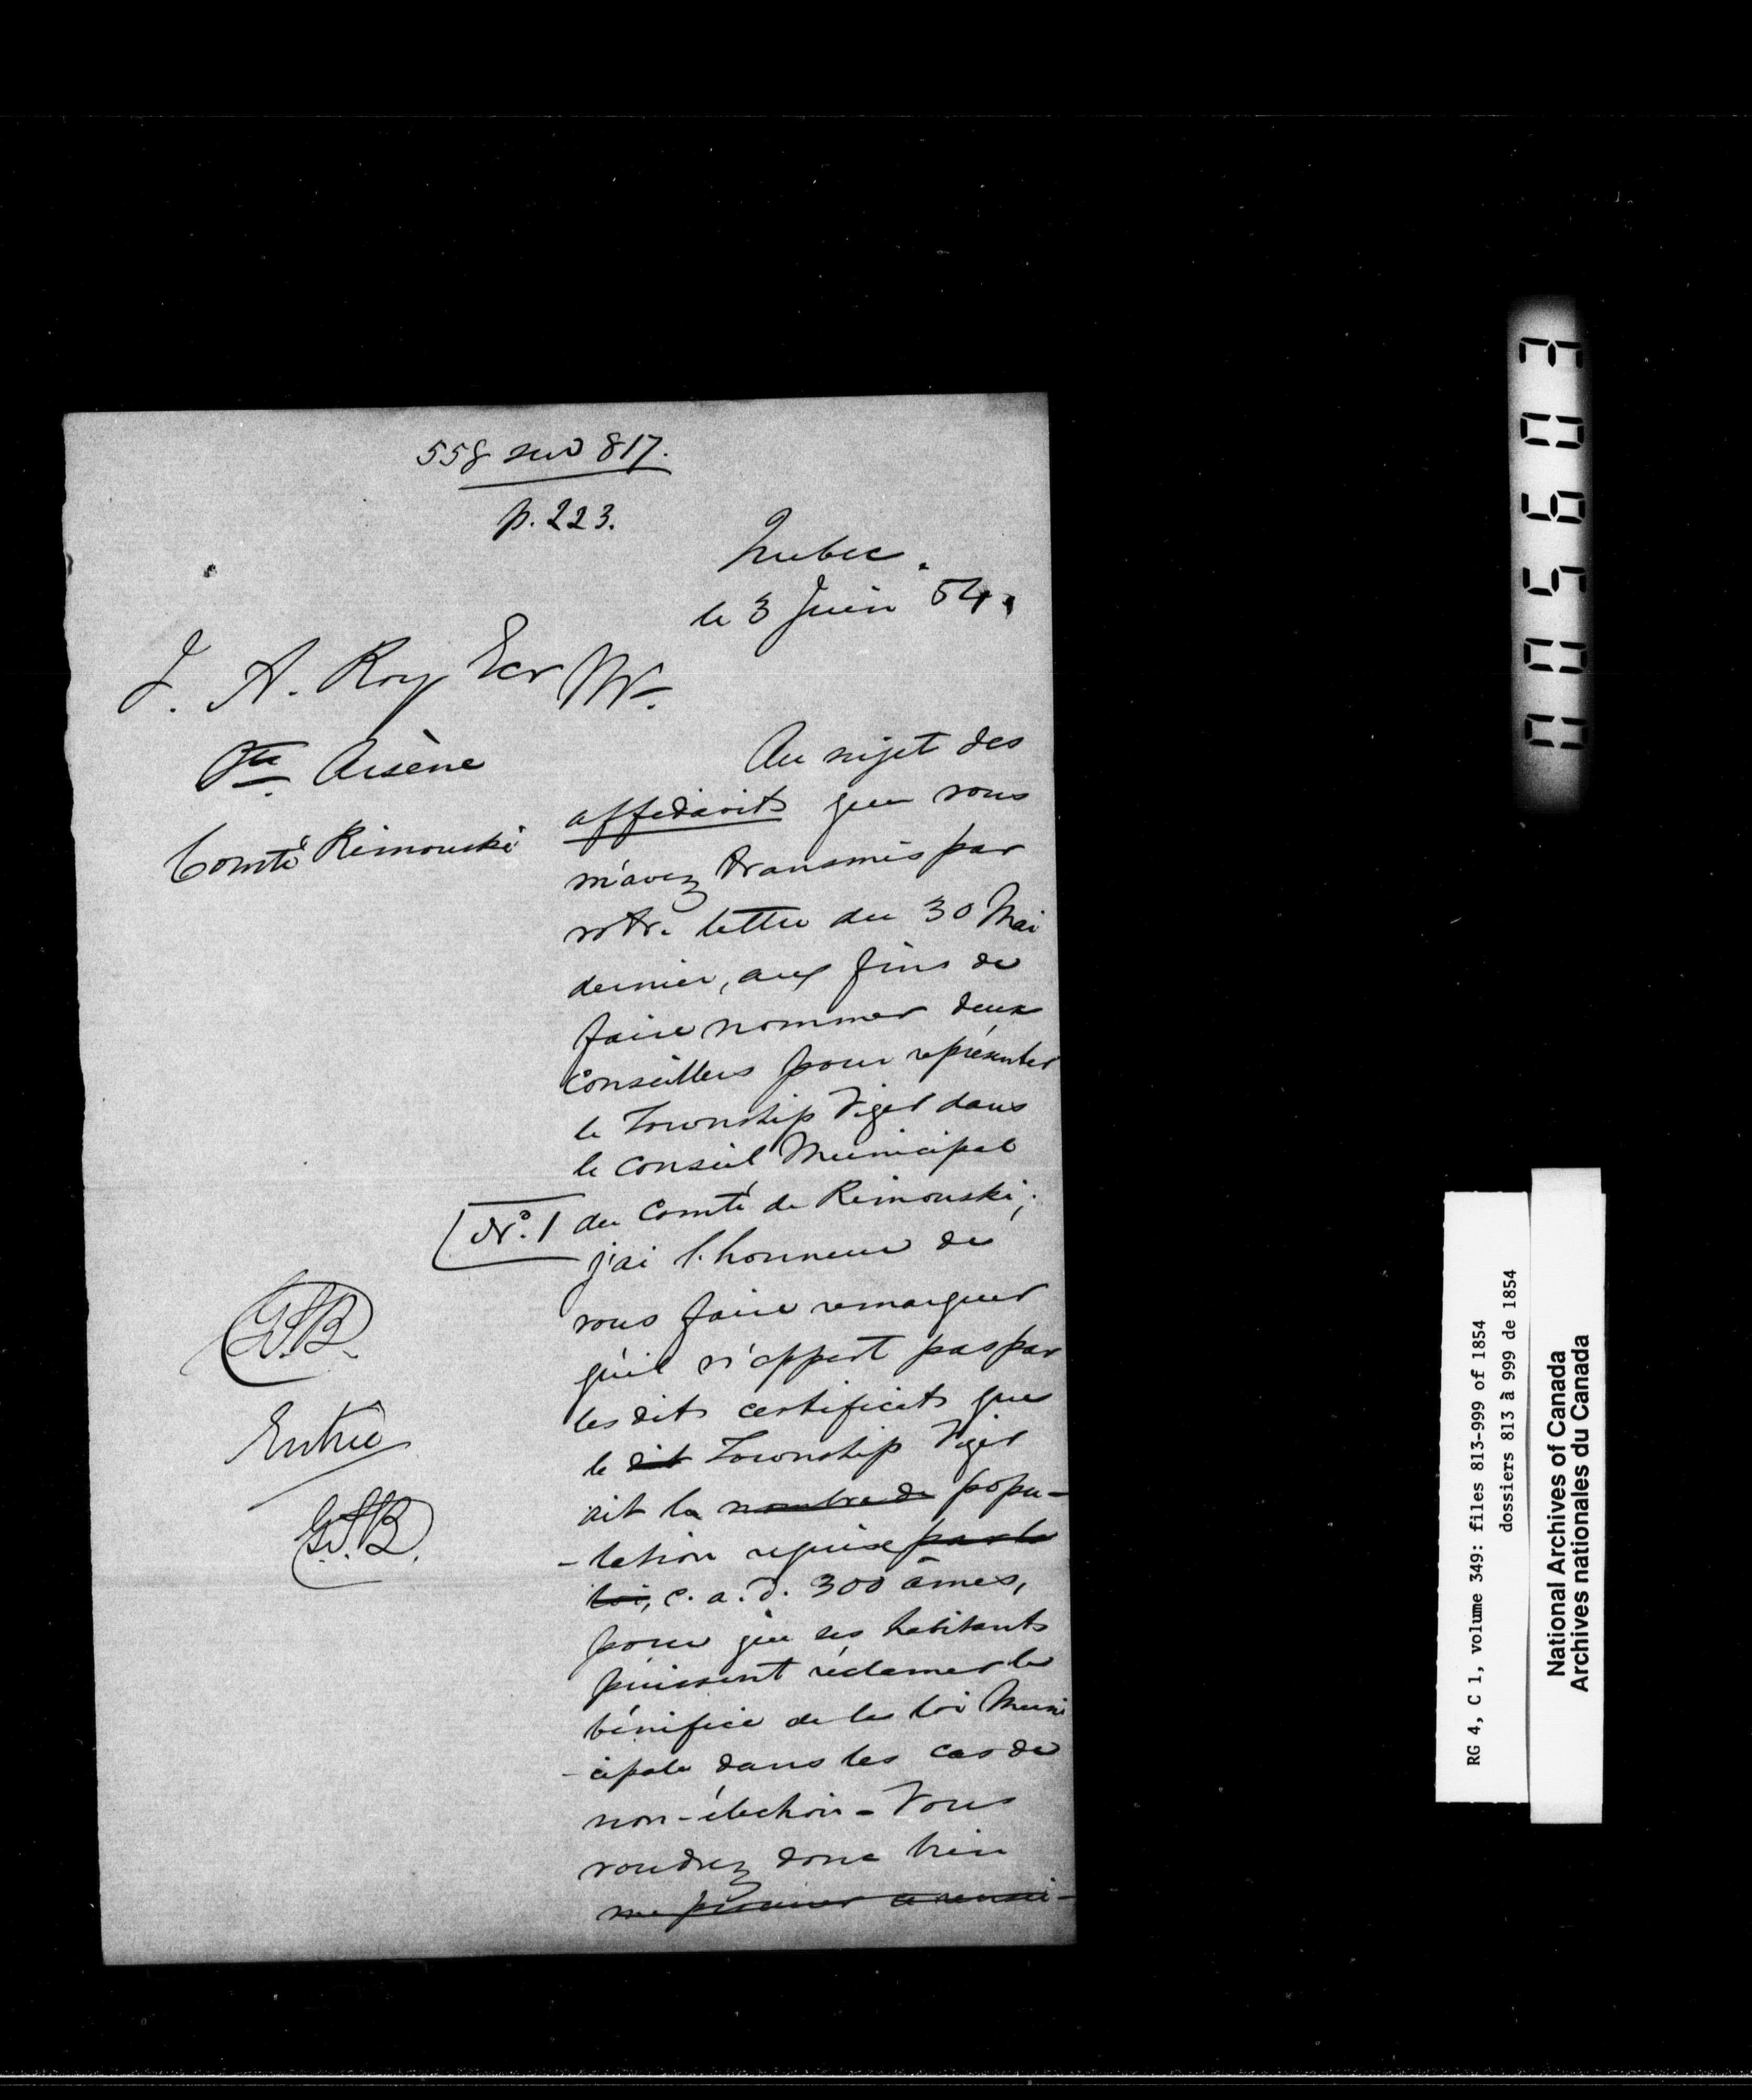 558 sur 817.
p. 223.
Quebec.
le 3 Juin 54.
J. A. Roy Ecr M.
Ste Arsène
Comté Rimouski
Au sujet des
affidavits que vous
m'avez transmis par
votr. lettre du 30 Mai
dernier, aux fins de
faire nommer deux
Conseillers pour représenter
le Township Viger dans
le Conseil Municipal
No. 1 du Comté de Rimouski;
j'ai l'honneur de
vous faire remarquer
qu'il n'appert pas par
les dits certificats que
le dit Township Viger
ait la nombre de popu-
-lation requise par la
loi, c. a. d. 300 âmes,
pour que ses habitants
puissent réclamer le
bénifice de la loi Muni
-cipale dans les cas de
non-élection - Vous
voudrez donc bien
me procurer ce rensei-
G.S.B.
Entrée
G.S.B.
0 0 5 6 0 3
RG 4, C 1, volume 349: files 813-999 of 1854
dossiers 813 à 999 de 1854
National Archives of Canada
Archives nationales du Canada